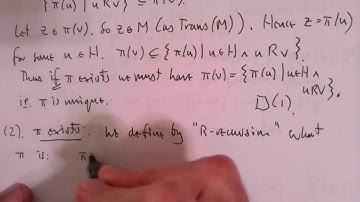 {π(u) | u R v}.
Let z ∈ π(v). So z ∈ M (as Trans(M)). Hence z = π(u)
for some u ∈ H. π(v) ⊆ {π(u) | u ∈ H ∧ u R v}.
Thus if π exists we must have π(v) = {π(u) | u ∈ H ∧ u R v}.
ie. π is unique. □(1).
(2). π exists. We define by "R-recursion" what
π is: π